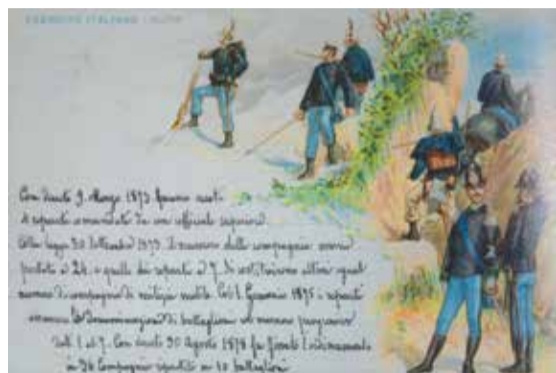 ESERCITO ITALIANO - ALPINI
Con decreto 9 Marzo 1873 furono creati
4 reparti comandati da un ufficiale superiore
Colla legge 30 Settembre 1873 il numero delle compagnie venne
portato a 24, e quello dei reparti a 7. Si costituirono altresì egual
numero di compagnie di milizia mobile. Col 1 Gennaio 1875 i reparti
assunsero la denominazione di battaglioni col numero progressivo
dall' 1 al 7. Con decreto 30 Agosto 1878 fu
in 36 Compagnie ripartite in 10 battaglioni